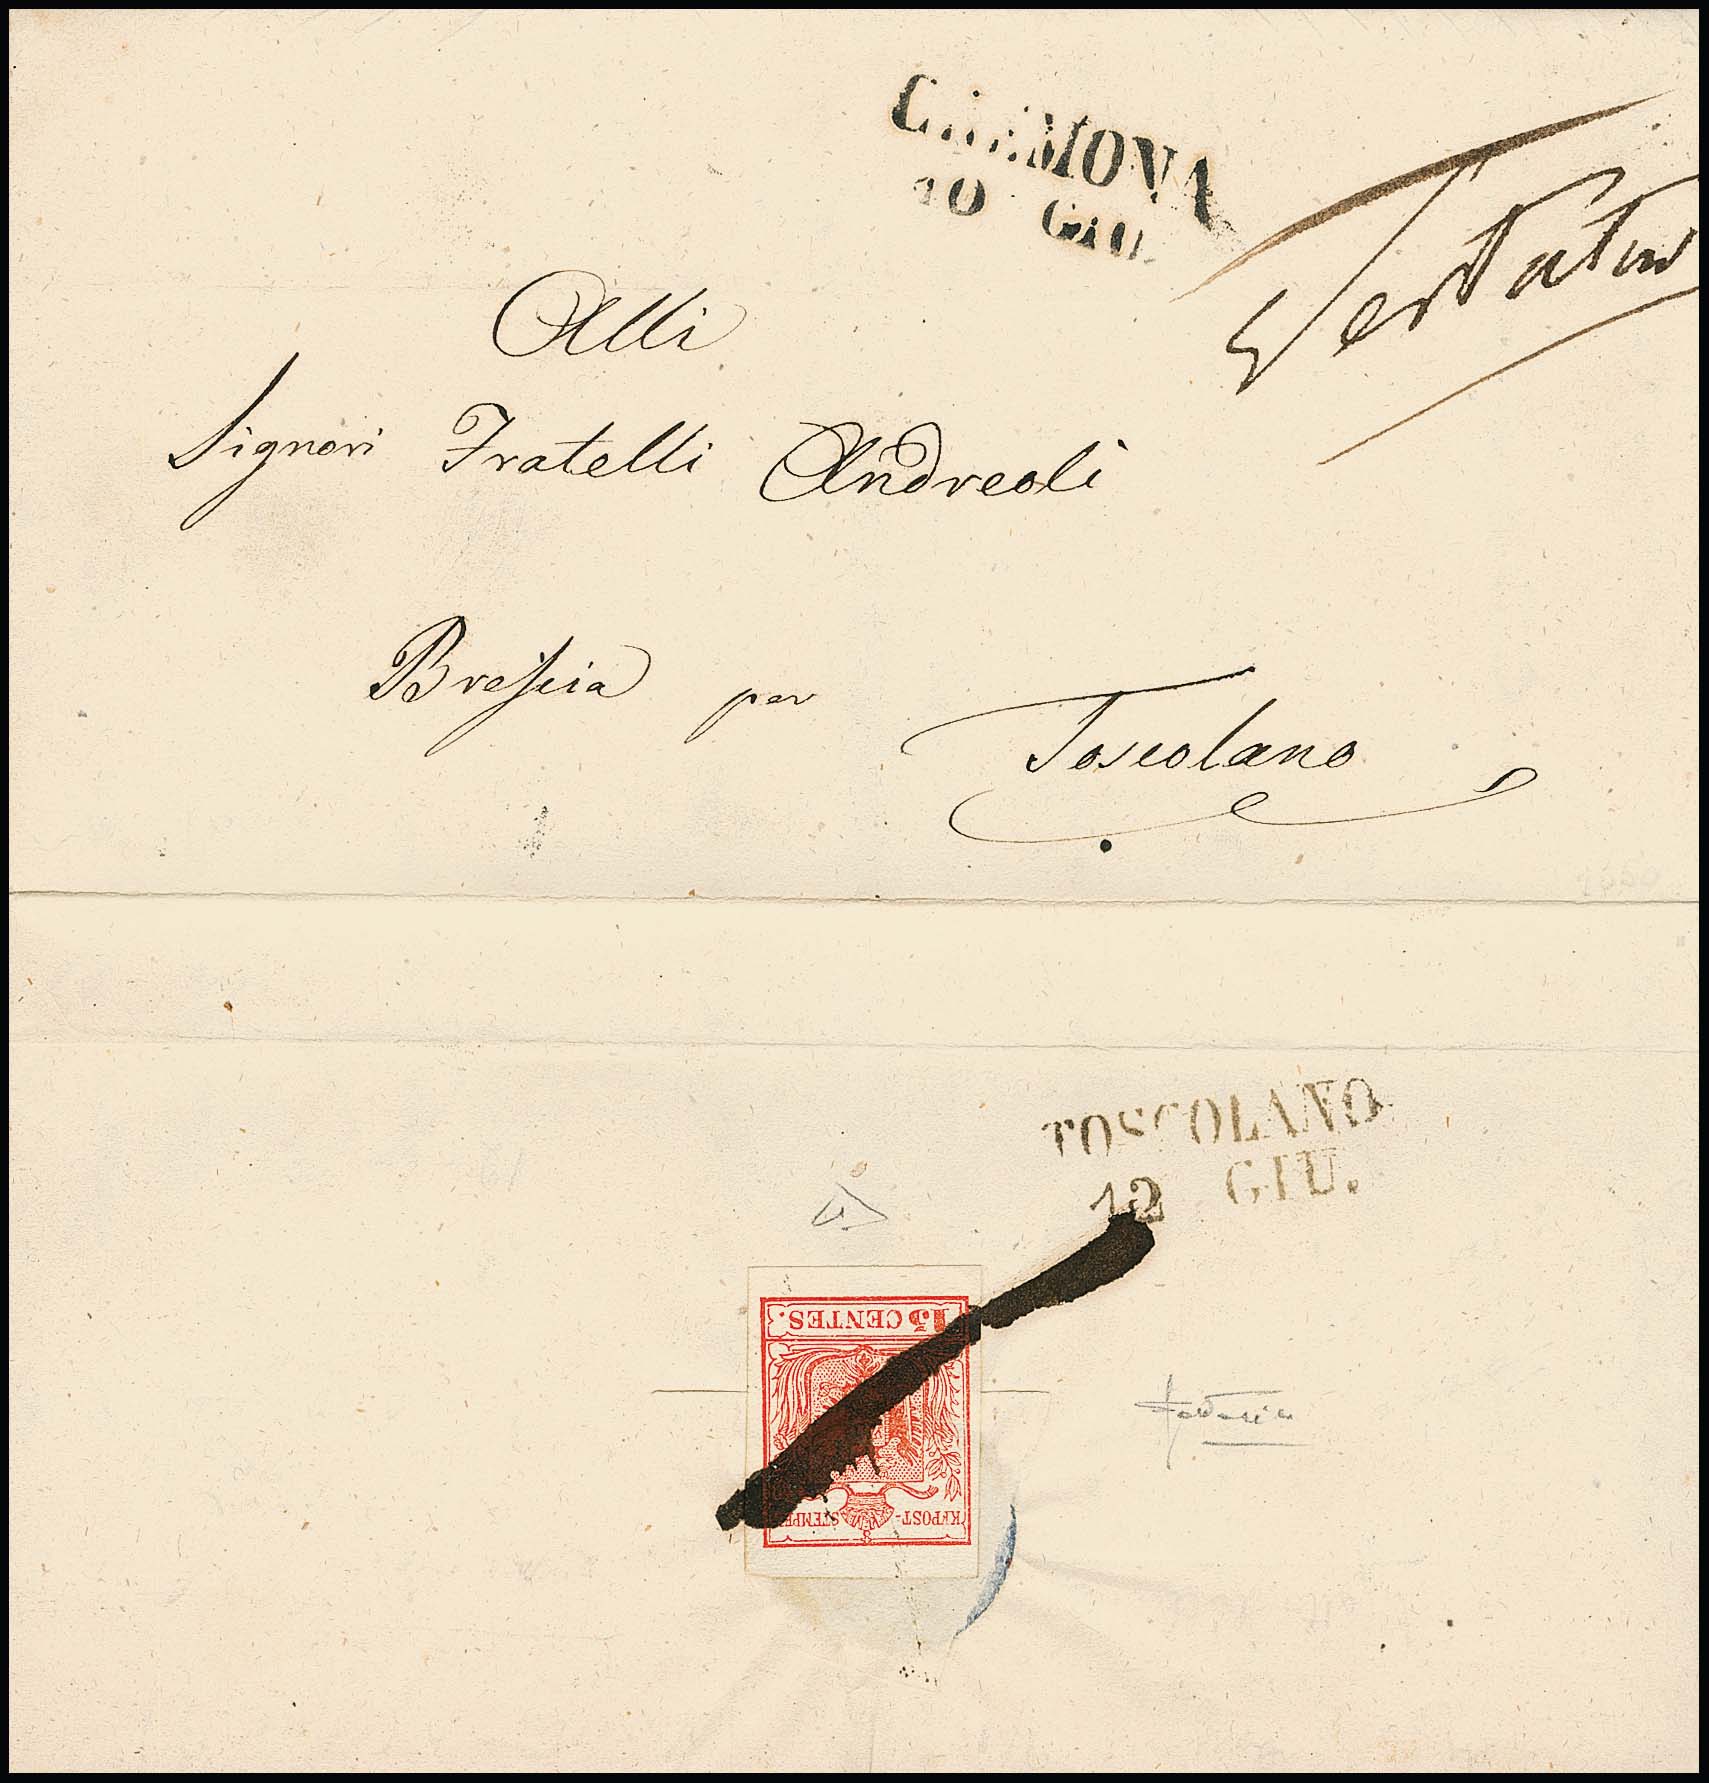 CREMONA
10 GIU.
Alli
Signori Fratelli Andreoli
Brescia per
Toscolano
TOSCOLANO
12 GIU.
15 CENTES.
KKPOST-